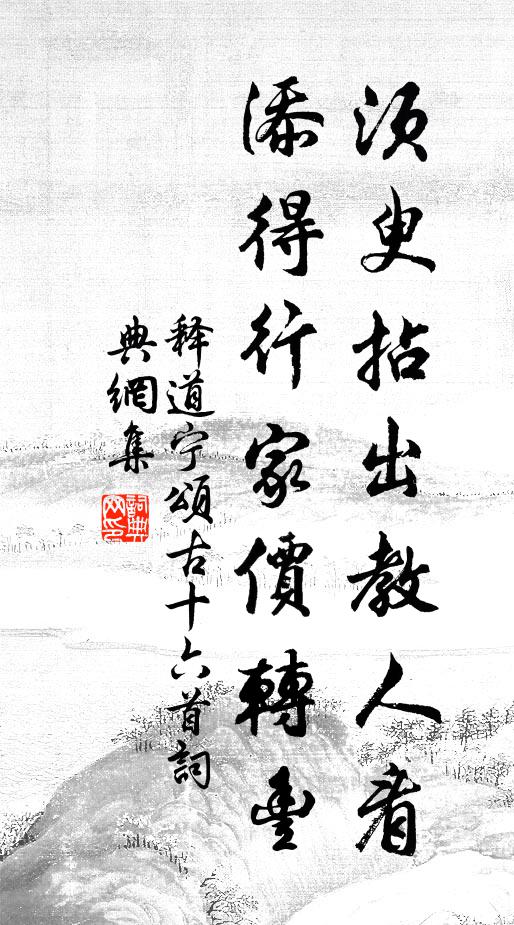 須臾拈出教人看
添得行家價轉豐
释道宁頌古十六首詞
典網集
詞典网印